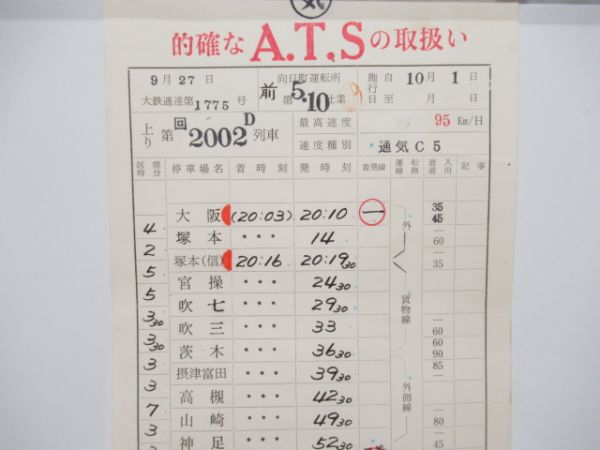 気
的確な A.T.S の取扱い
9月27日 向日町運転所 施行 自 10月 1日
大鉄通達第1775号 前 5.10 行 日 至 月 日
上り 第 回2002D 列車 最高速度 95 Km/H
速度種別 通気C5
区間時分 停車場名 着時刻 発時刻 着発線 運転線路 入出進進 記事
大阪 (20:03) 20:10 一 35 45
4
塚本 ・・・ 14 外 60
2
塚本(信) 20:16 20:19 30 35
5
宮操 ・・・ 24 30
5
吹七 ・・・ 29 30 貨物線
3 30
吹三 ・・・ 33 60
3 30
茨木 ・・・ 36 30 60 90
3
摂津富田 ・・・ 39 30 85
3
高槻 ・・・ 42 30 外側線
7
山崎 ・・・ 49 30 80
3
神足 ・・・ 52 30 45